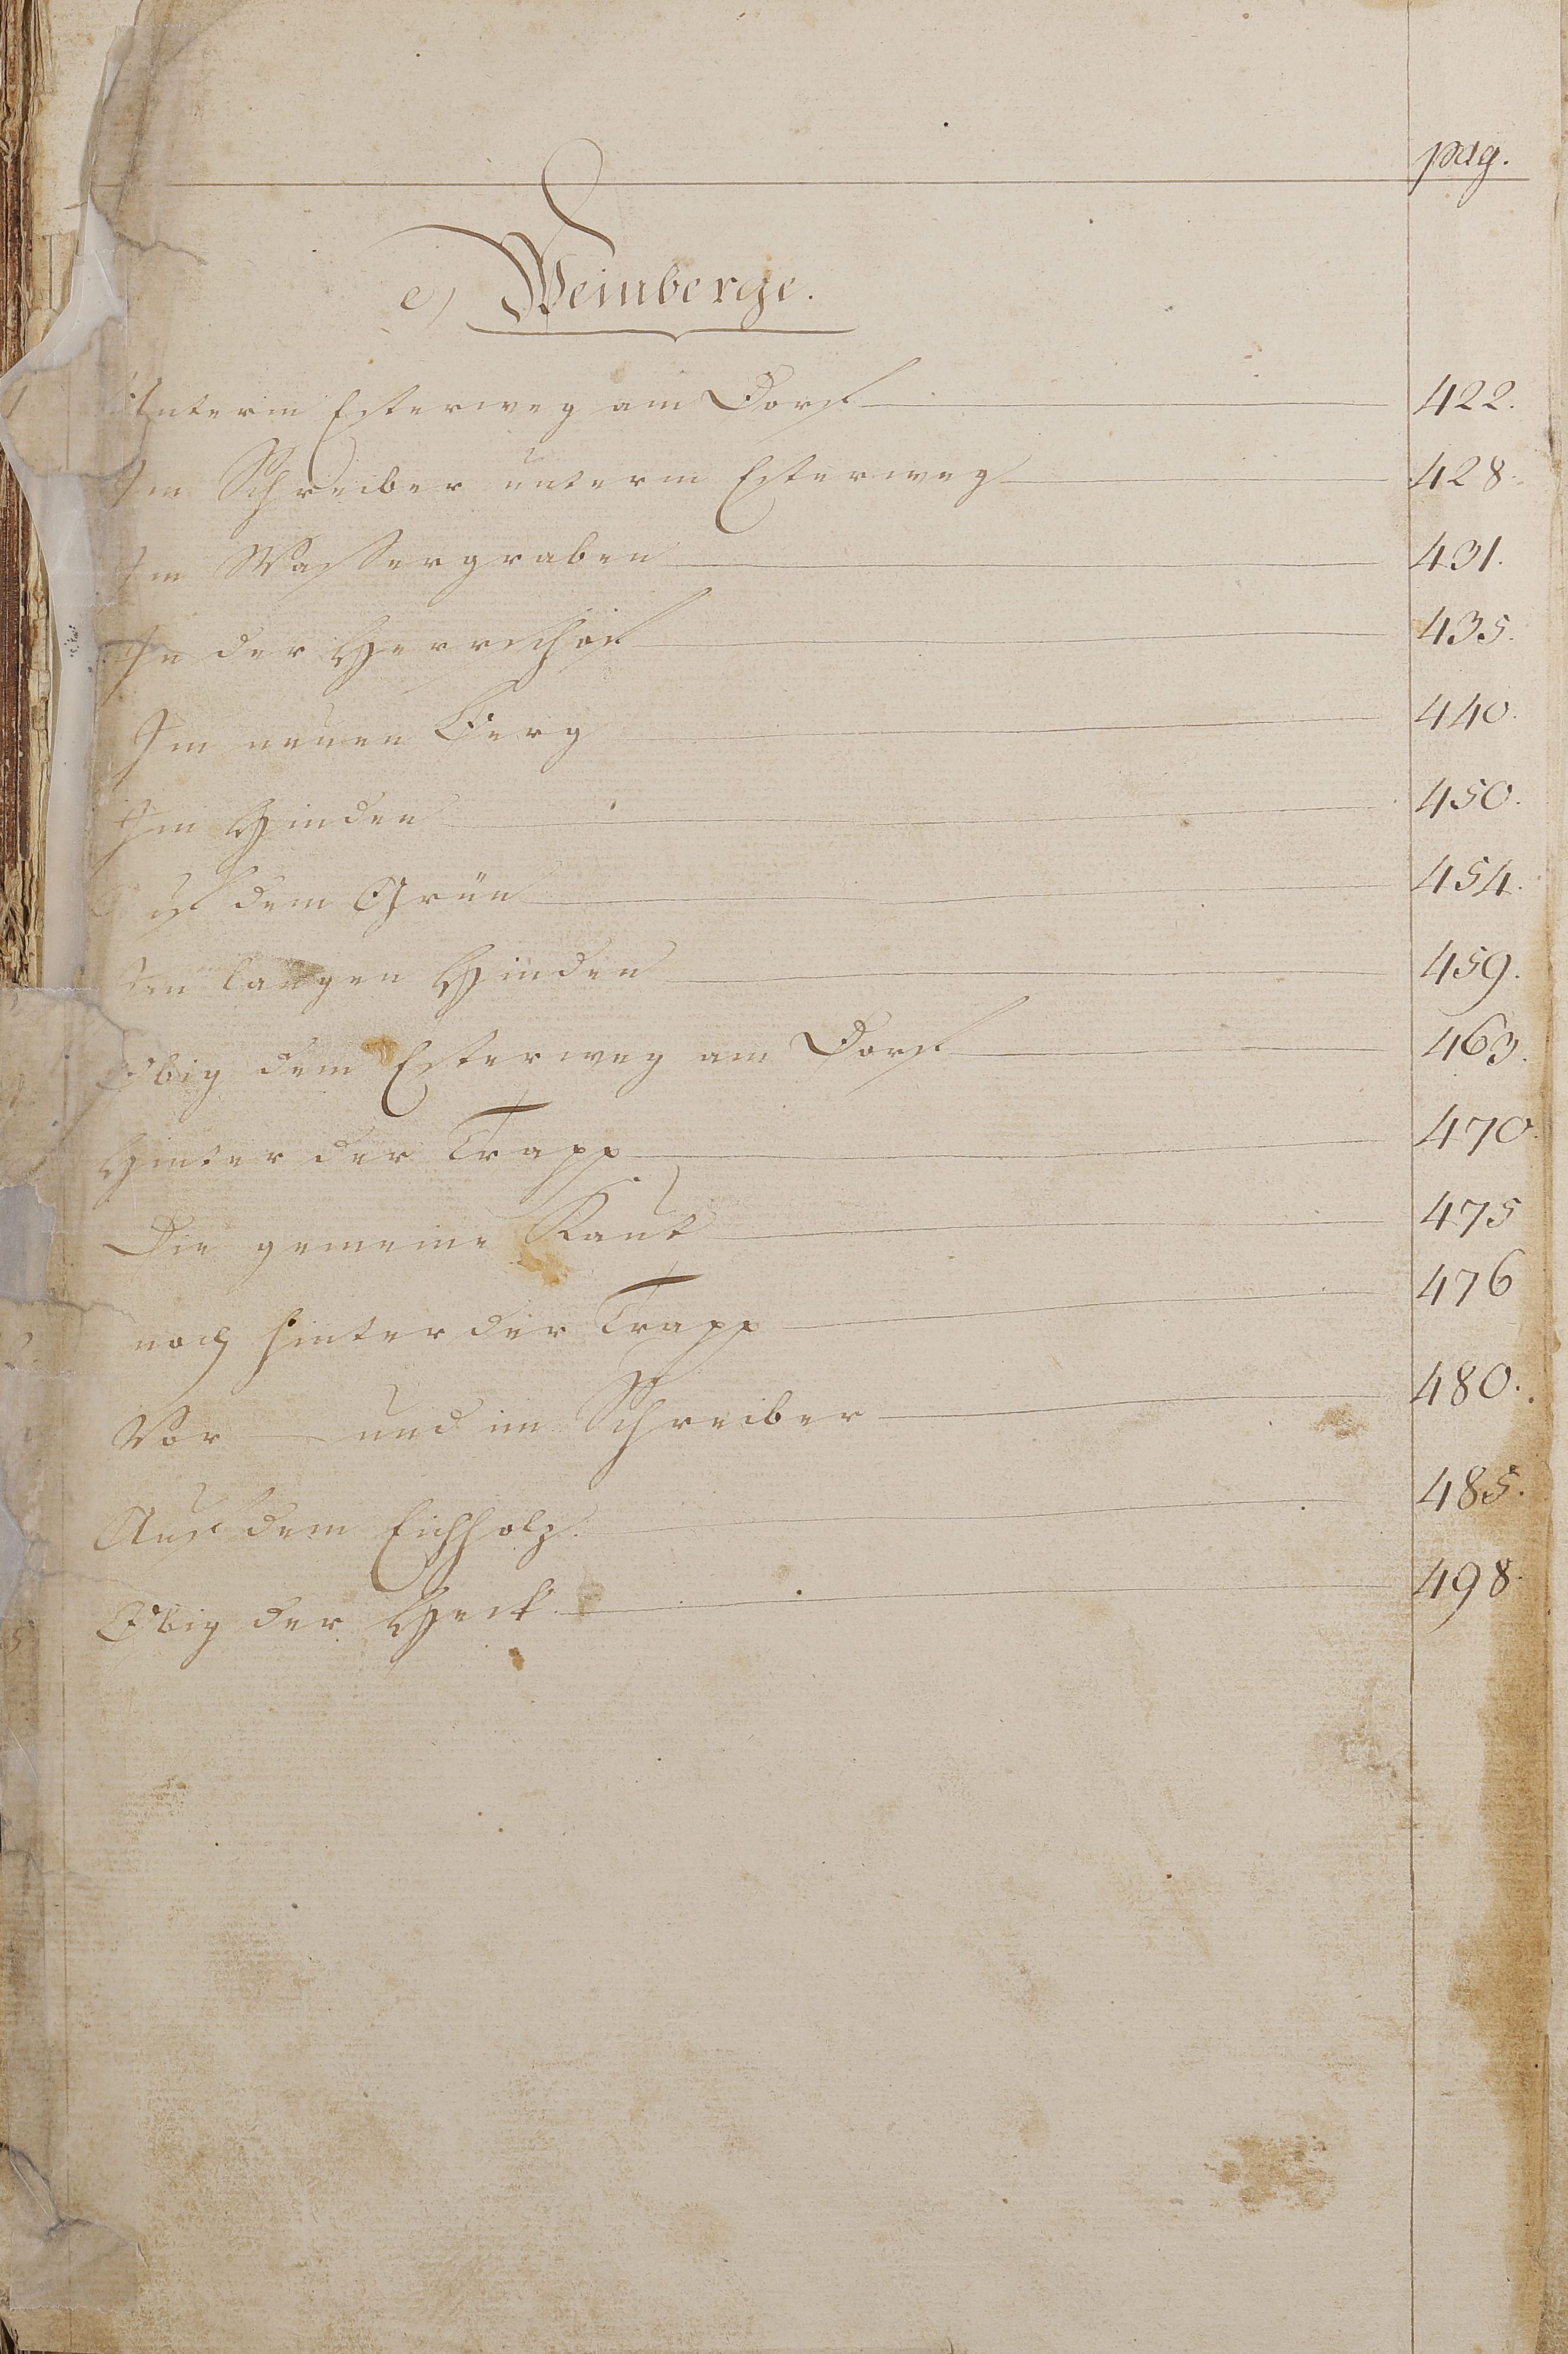 pag.
e) Weinberge.
Unterm Esterweg am Dorf 422.
Im Schreiber unterm Esterweg 428.
Im Wassergraben 431.
In der 435.
Im neuen Berg 440.
Im Hinden 450.
uf dem Grün 454.
Im langen Hinden 459.
Obig dem Esterweg am Dorf 463.
Hinter der Trapp 470.
Die gemeine Kaut 475
noch hinter der Trapp 476
Vor — und im Schreiber 480.
Auf dem Eichholz. 485.
Obig der Heck 498.